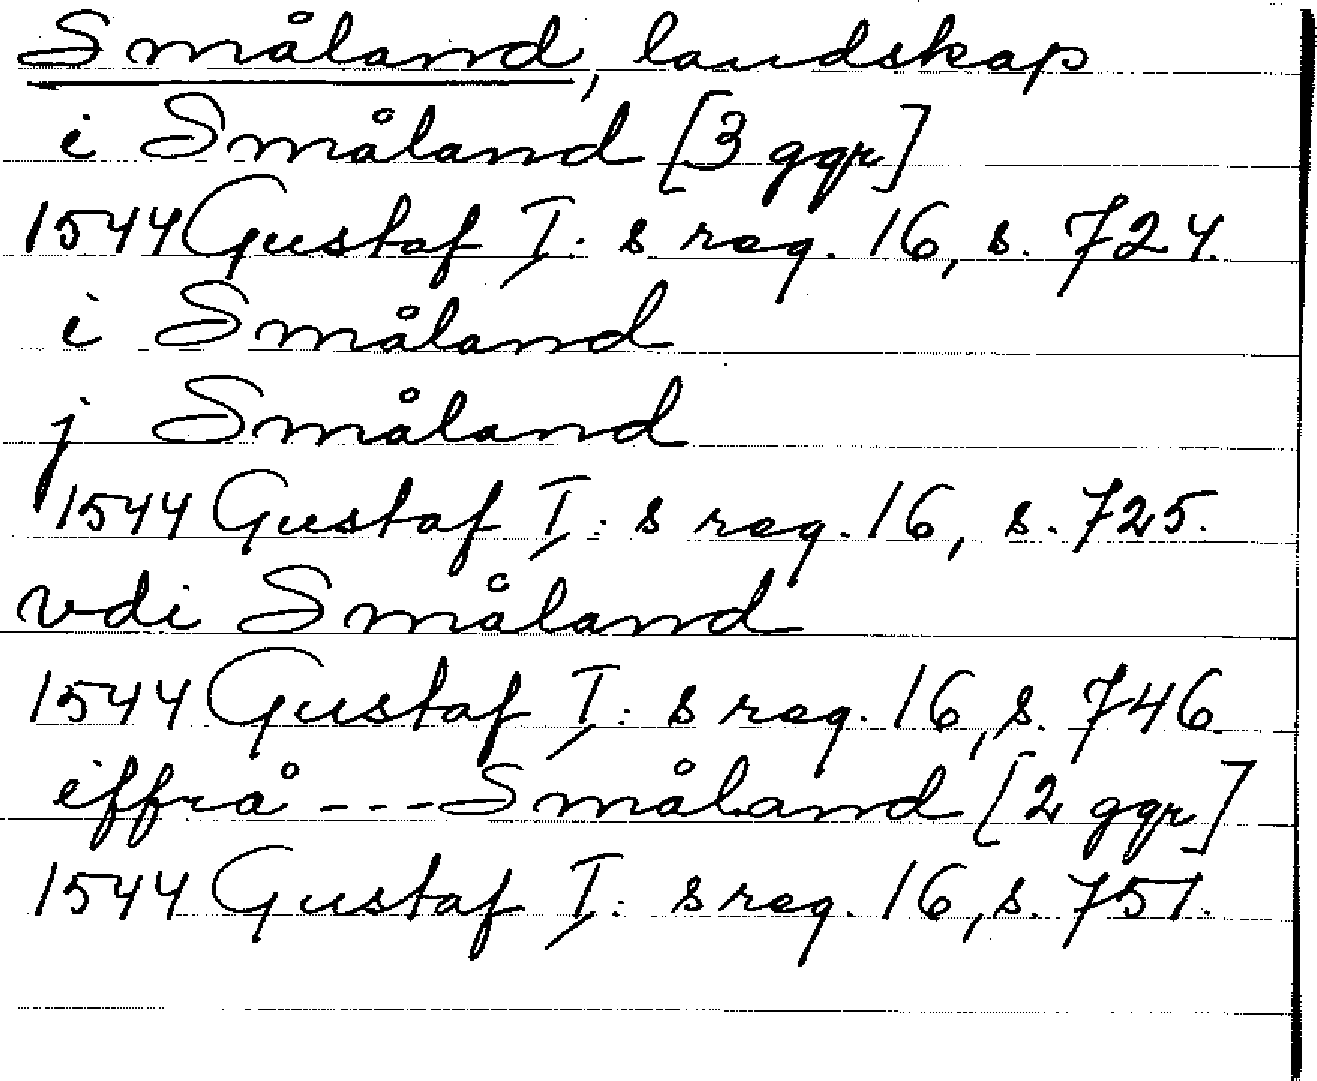 Småland, landskap
i Småland [3 ggr]
1544 Gustaf I:s reg. 16, s. 724.
i Småland
j Småland
1544 Gustaf I:s reg. 16, s. 725.
vdi Småland
1544 Gustaf I:s reg. 16, s. 746.
iffrå --- Småland [2 ggr]
1544 Gustaf I:s reg. 16, s. 751.